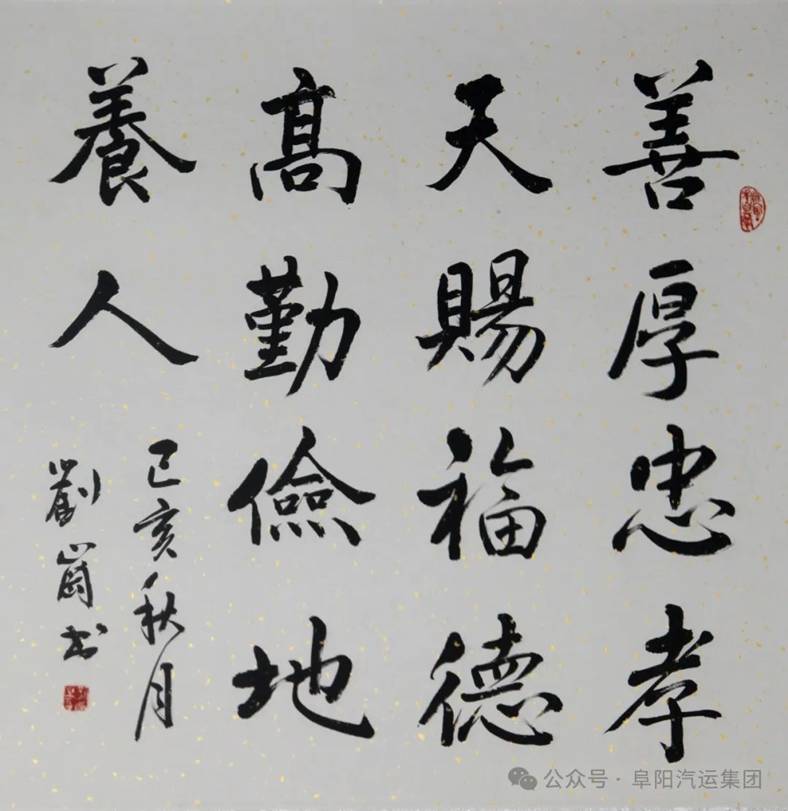 善厚忠孝
天賜福德
高勤儉地
養人
己亥秋月
劉崗书
公众号·阜阳汽运集团